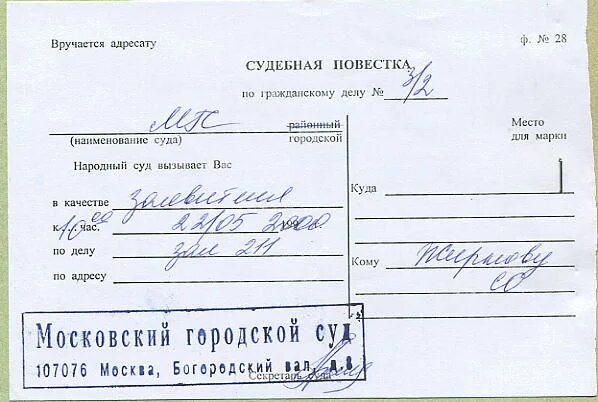 Вручается адресату
ф. № 28
СУДЕБНАЯ ПОВЕСТКА
по гражданскому делу № 3/2
МГС районный
(наименование суда) городской
Народный суд вызывает Вас
в качестве заявителя
к 10 00 час. 22/05 2000
по делу зал 211
по адресу
Место
для марки
Куда
Кому Жирнову
СО
Московский городской суд
107076 Москва, Богородский вал, д.8
Секретарь суда